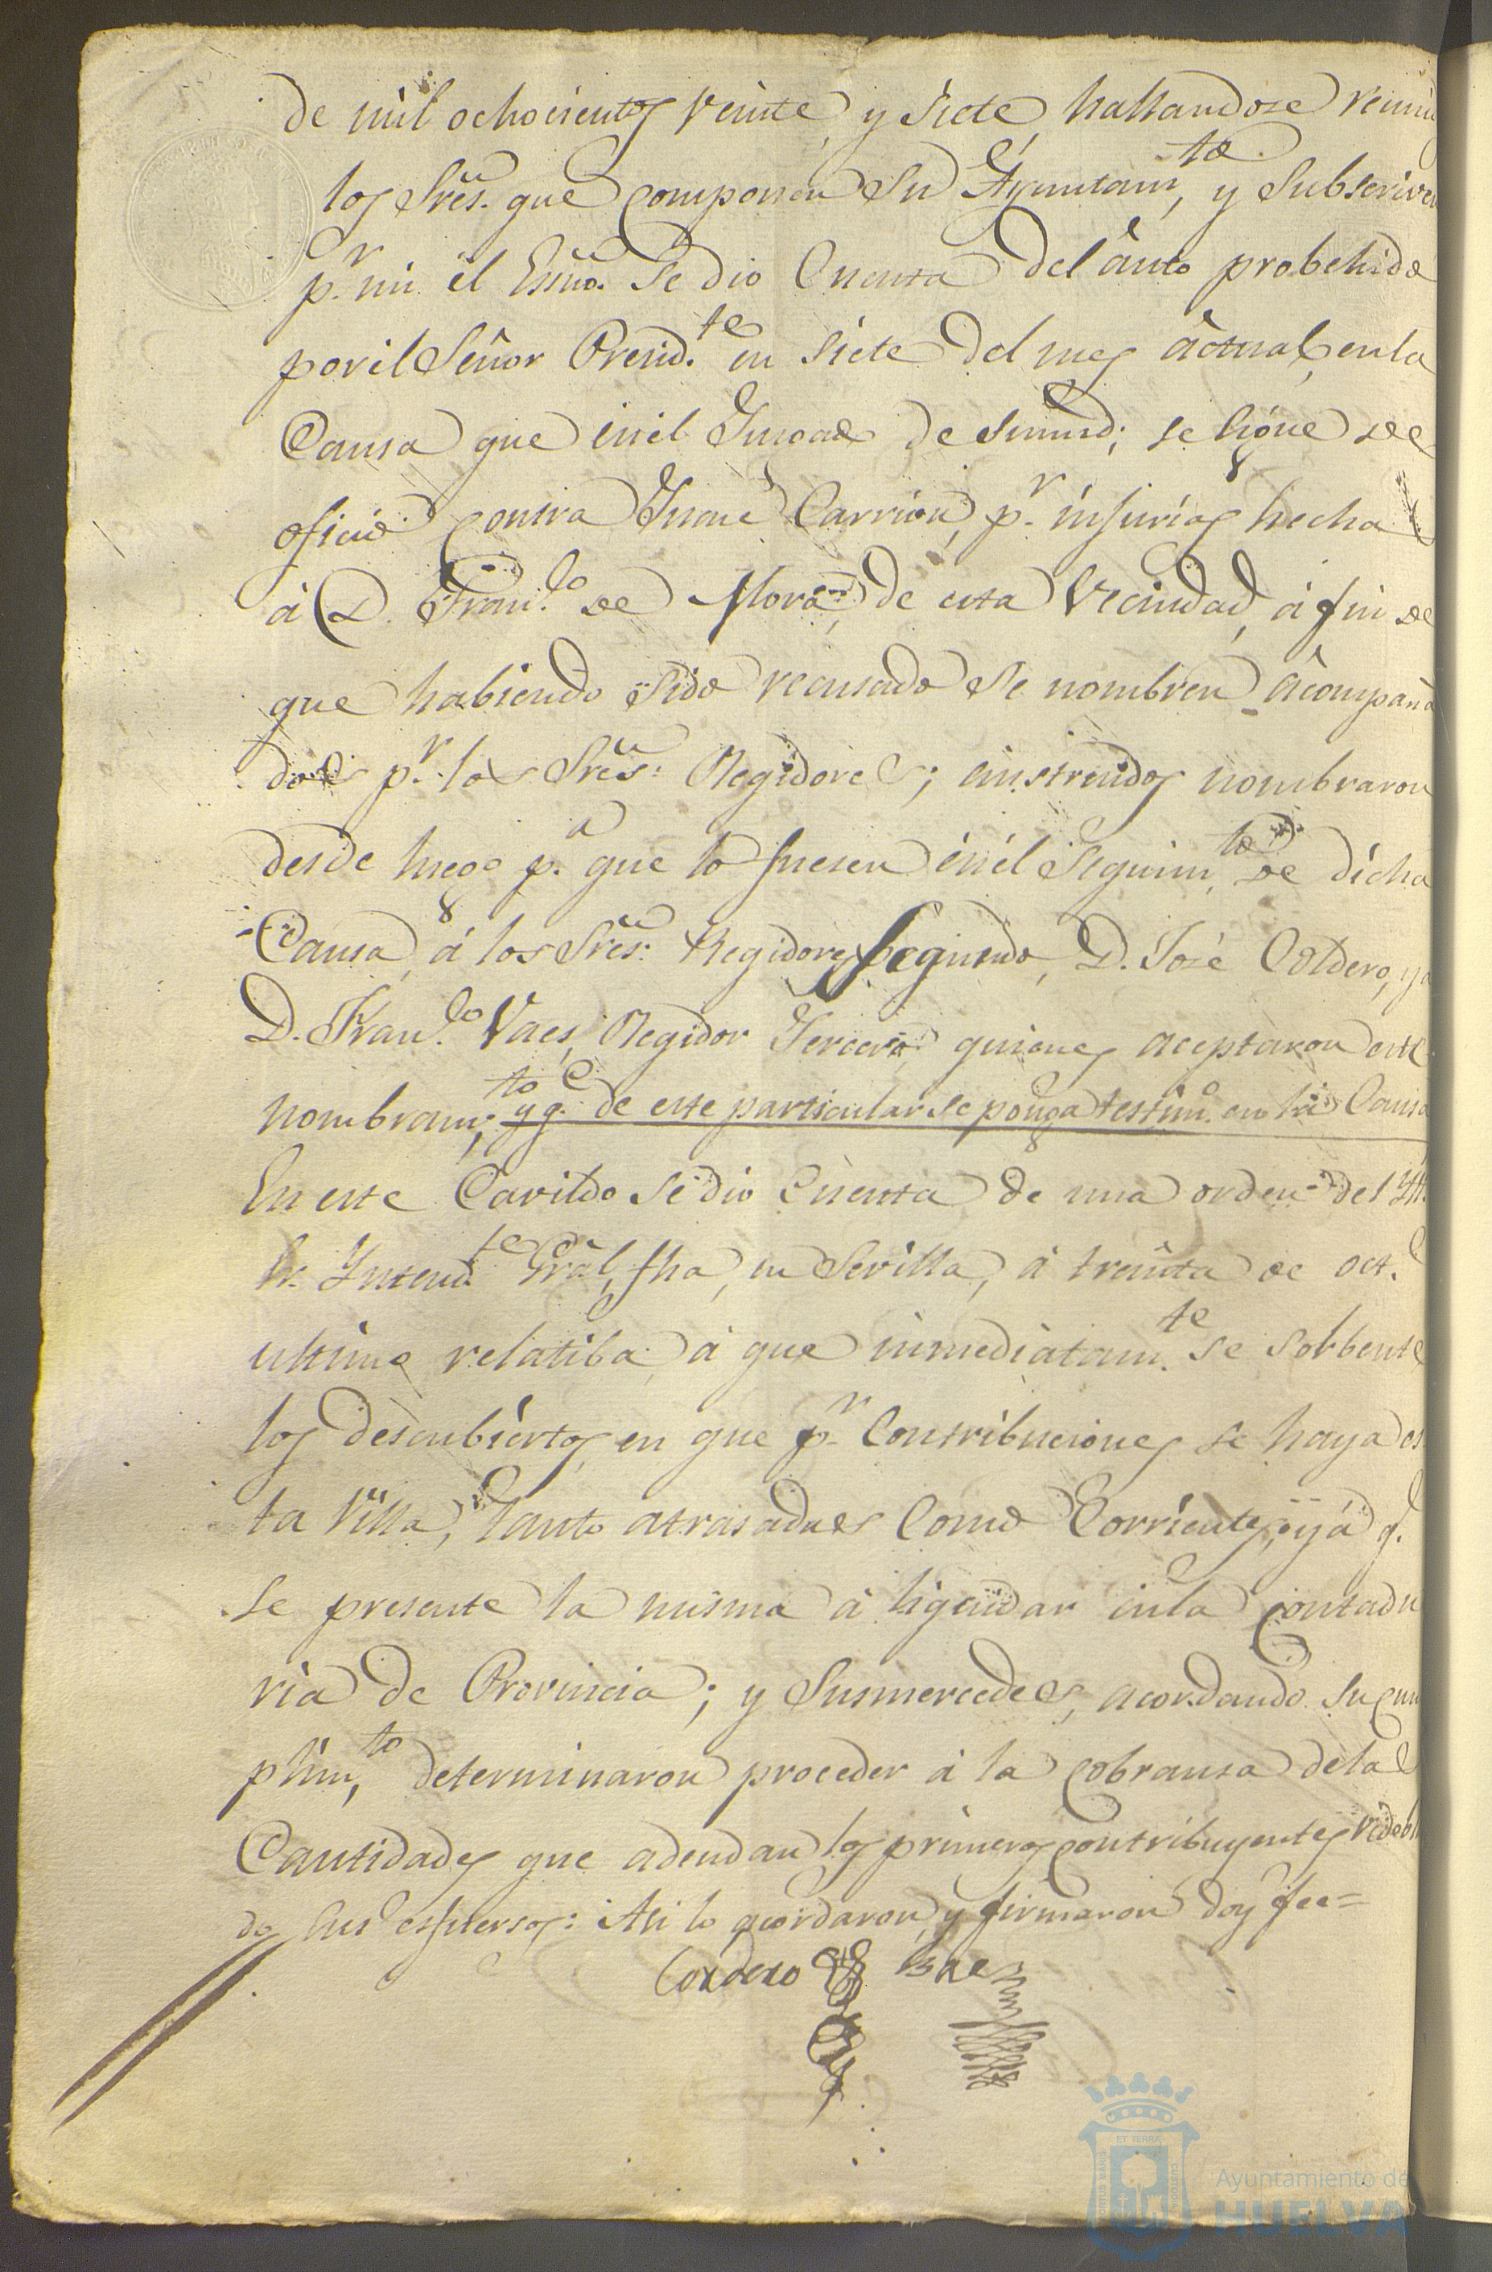 de mil ochocientos veinte, y siete, hallandose reuni
los Sres. que componen su Ayuntam.to, y subscriven
p.r mi el Essno. se dio Cuenta del auto probehido
por el Señor Presid.te en siete del mes actual, en la
Causa que en el Juzgado de sumrd; se sigue de
oficio contra Carrion, p.r injurias hecha
à D. Fran.co de Mora, de esta Vecindad, á fin de
que habiendo sido recusado se nombren acompaña
dos p.r los Sres. Regidores; e instruidos nombraron
desde luego p.a que lo fuesen en el seguim.to de dicha
Causa, á los Sres. Regidores segundo, D. José Coldero, y a
D. Fran.co Vaes, Regidor Tercero quienes aceptaron este
nombram.to; y q.e de este particular se ponga testim.o en la Causa
En este Cavildo se dio Cuenta de una orden del Yll.
Sr. Yntend.te Gral, fha, en Sevilla, á treinta de oct.e
ultimo relatiba á que inmediatam.te se solbente
los descubiertos en que p.r Contribuciones se haya es
ta Villa, tanto atrasadas como Corrientes, y á q.e
se presente la misma á liquidar en la contadu
ria de Provincia; y Susmercedes, acordando su cum
plim.to, determinaron proceder á la cobransa de las
Cantidades que adeudan los primeros contribuyentes
sus esfuersos: Asi lo acordaron, y firmaron doy fee=
Cordero Baes
Ayuntamiento de
HUELVA